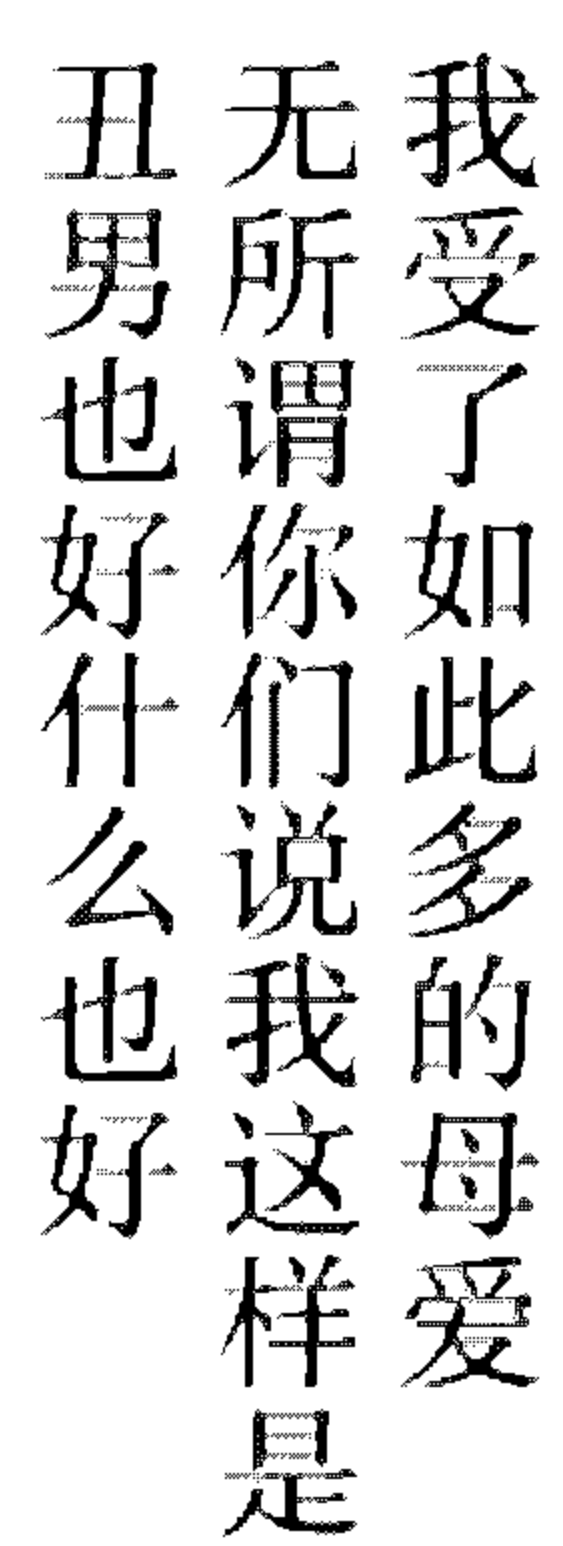 我受了如此多的母爱
无所谓你们说我这样是
丑男也好什么也好